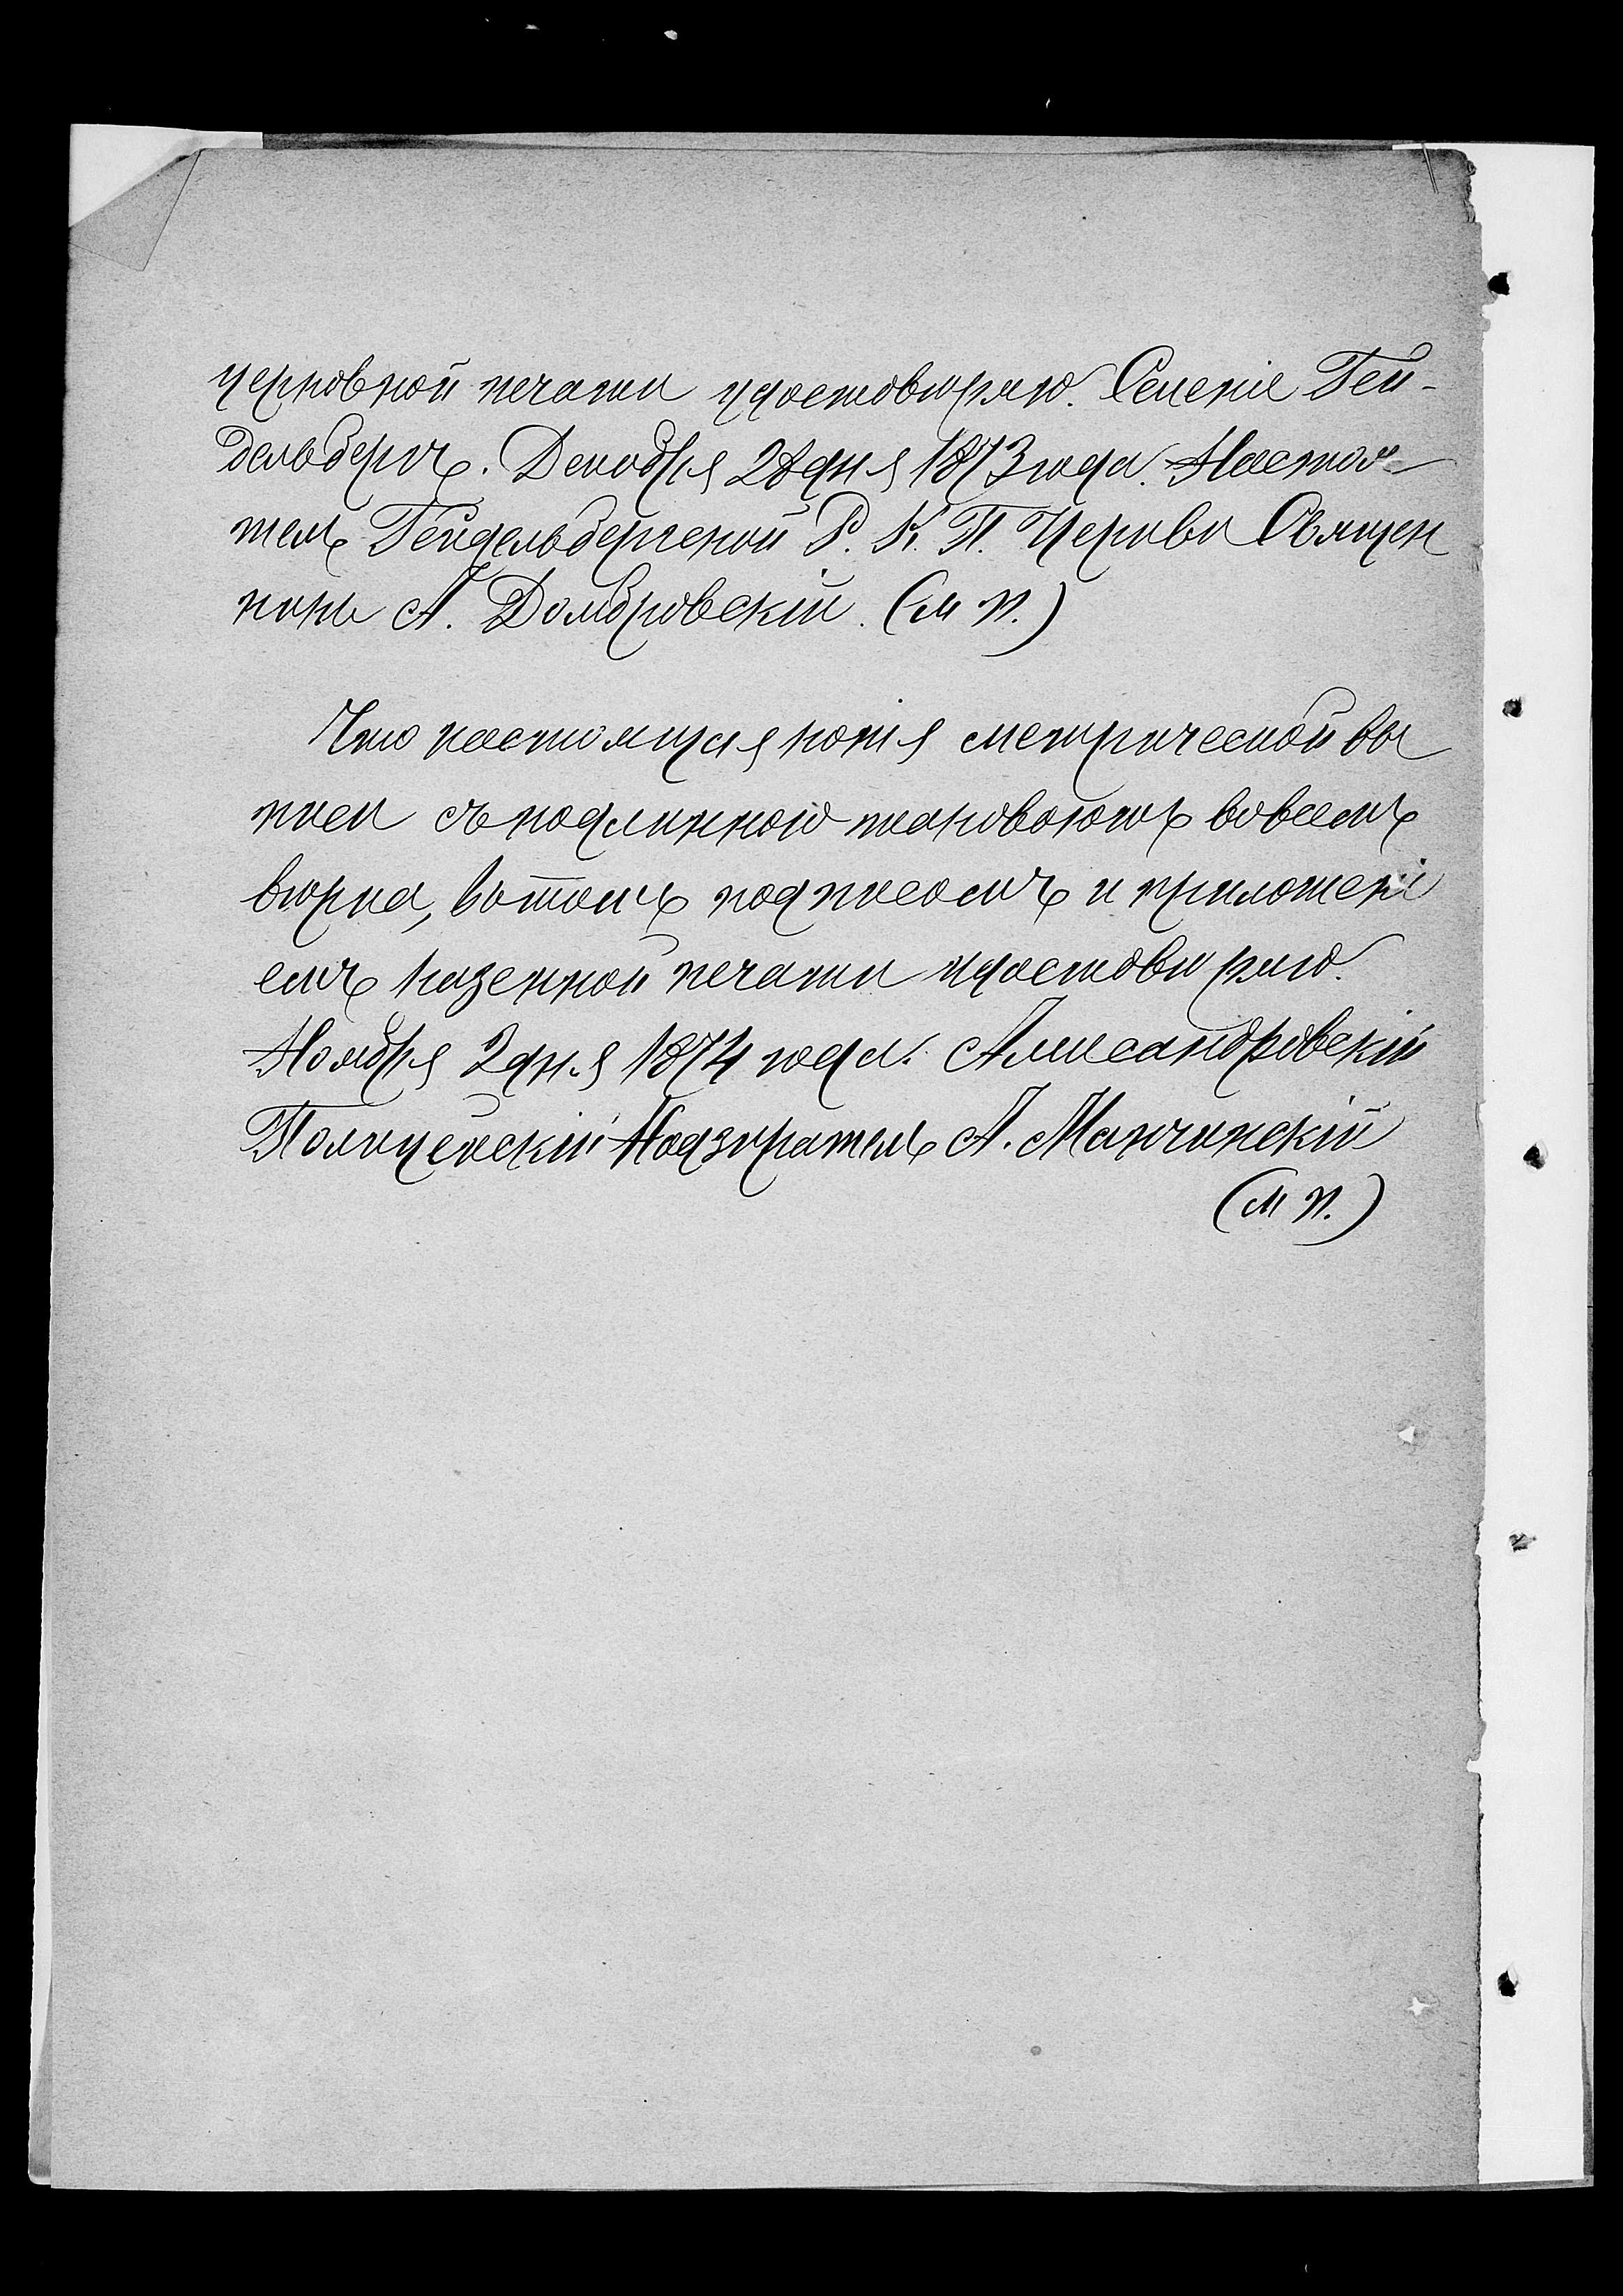 церковной печати удостовѣряю. Селеніе Гей-
дельбергъ. Декабря 28 дня 1873 года. Настоя-
тель Гейдельбергской Р. К. П. Церкви Священ
никъ А. Домбровскій. (М П.)
Что настоящая копія метрической вы
писи съ подлинною таковоюжъ во всемъ
вѣрна, въ томъ подписомъ и приложені
емъ казенной печати удостовѣряю.
Ноября 2 дня 1874 года. Александровскій
Полицейскій Надзиратель А. Манчинскій
(М П.)